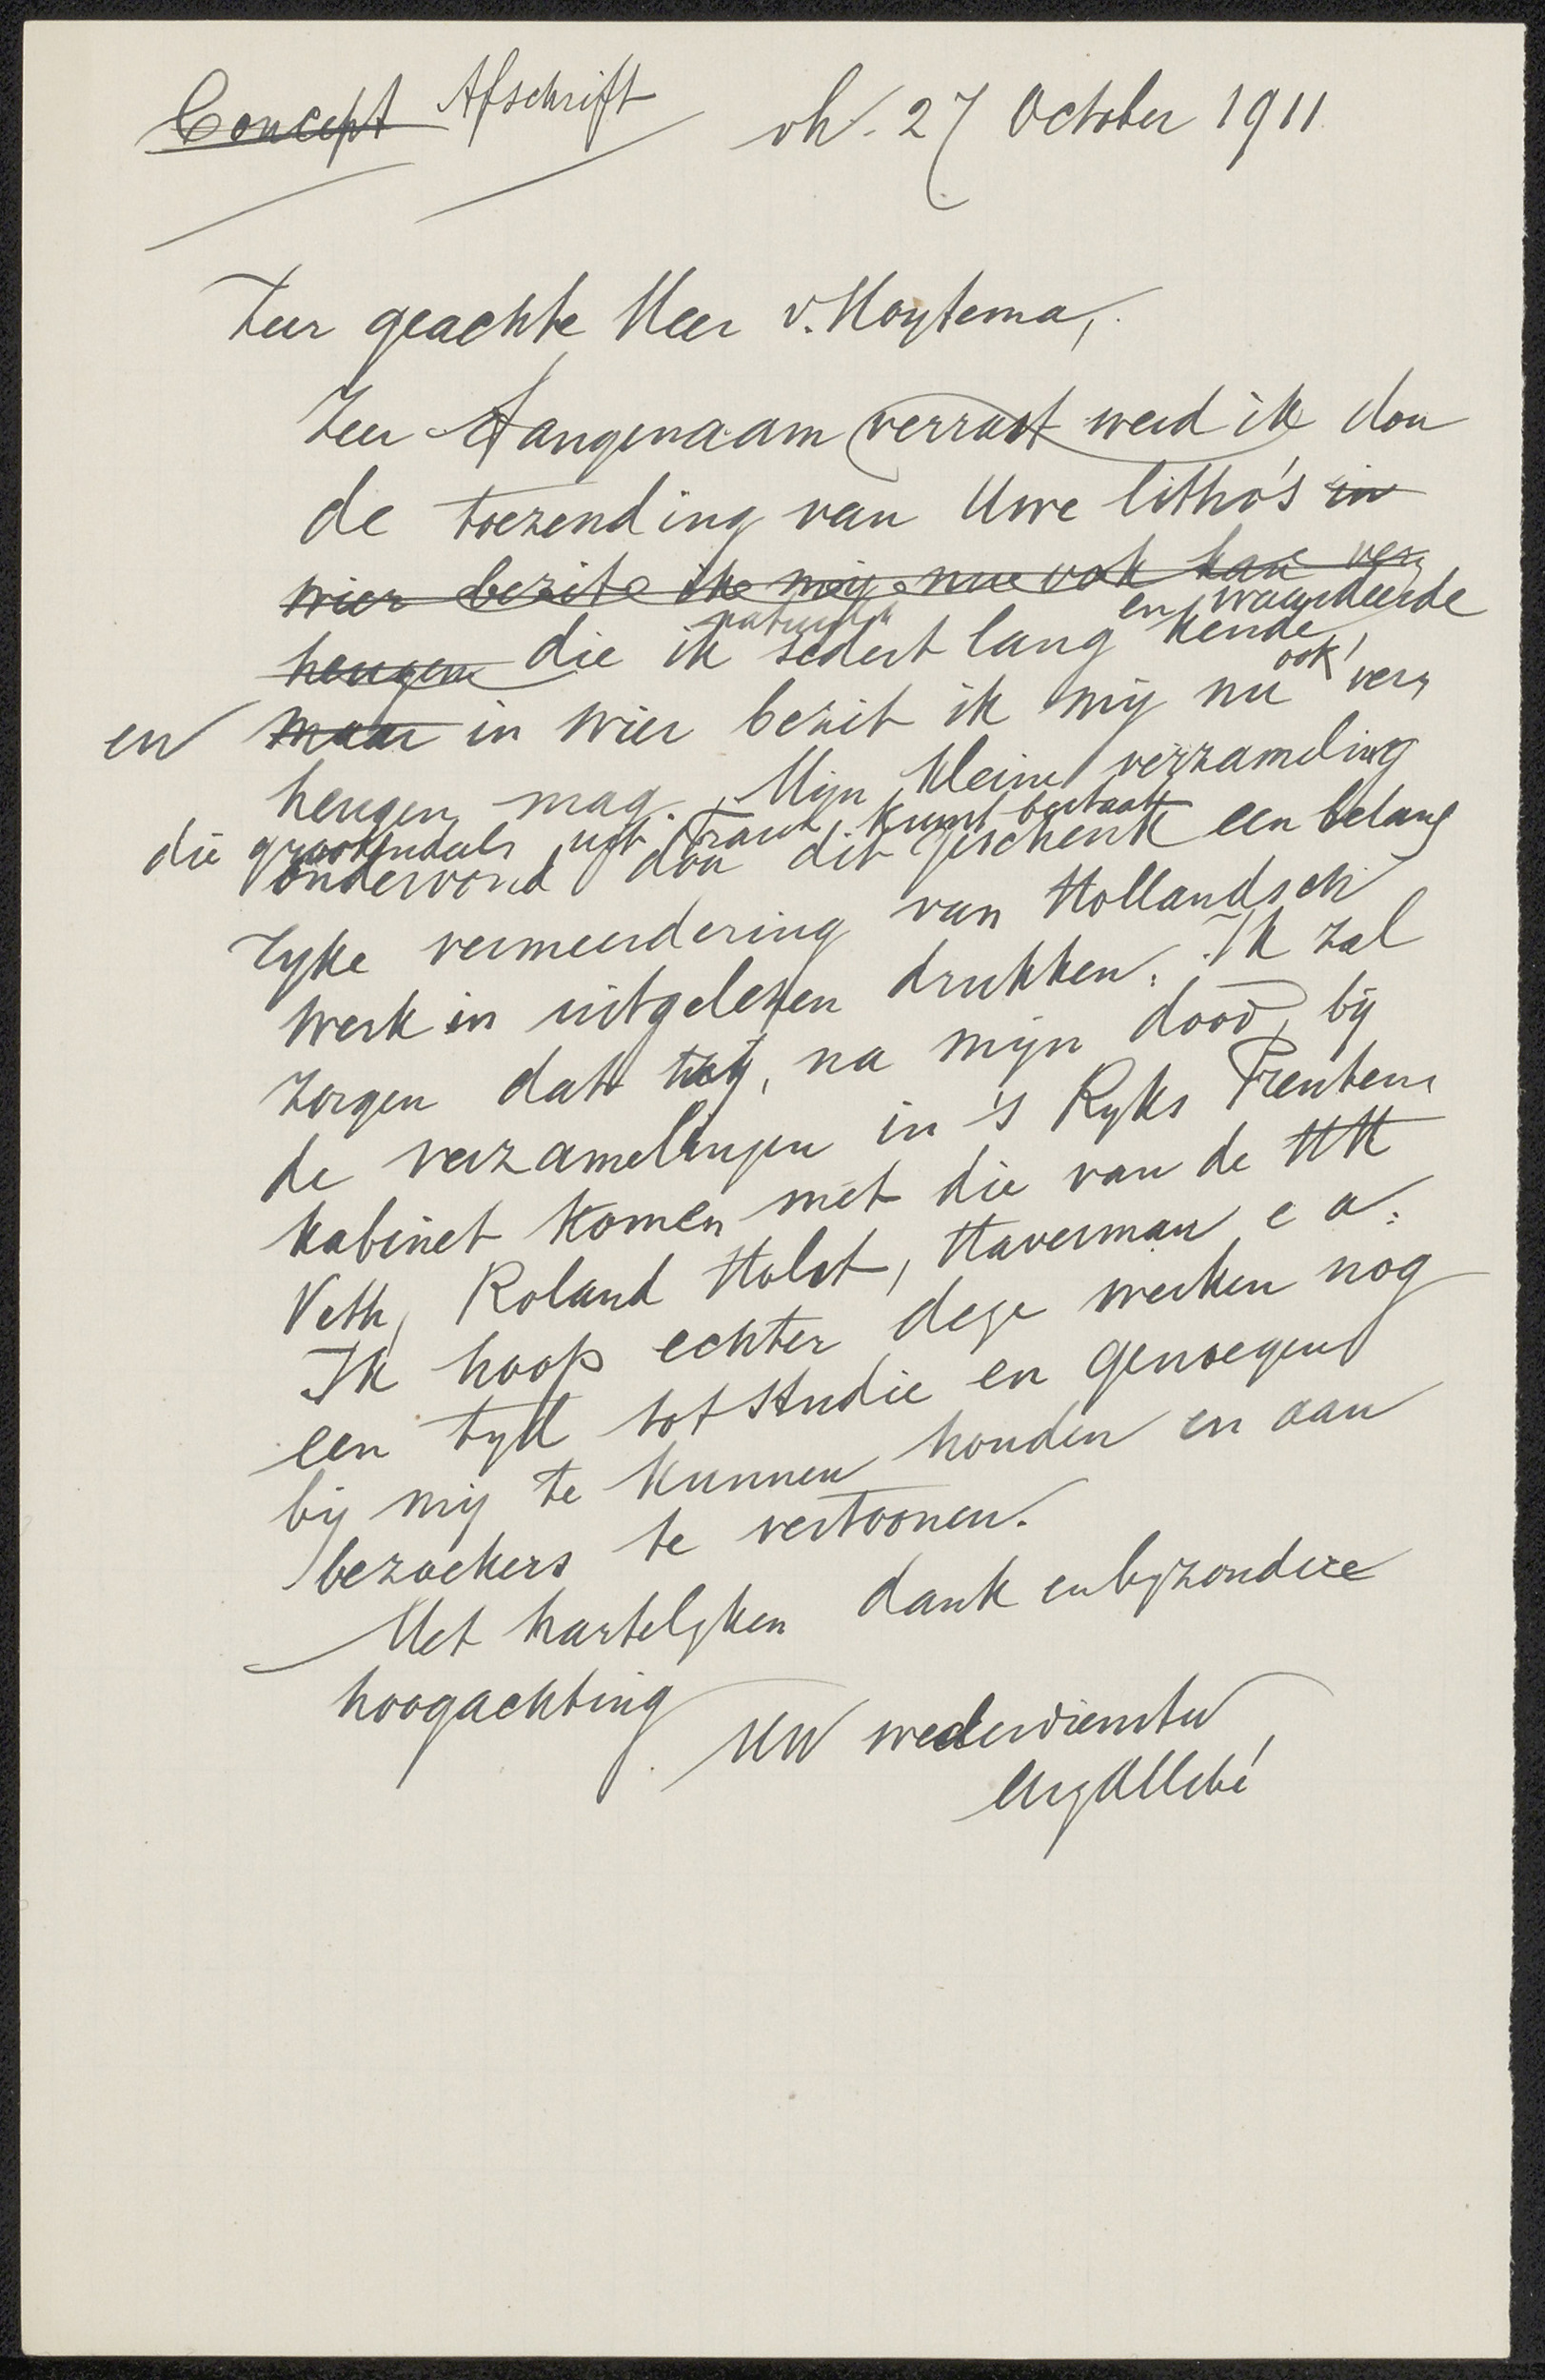 Concept Afschrift 27 October 1911
Zeer geachte Heer v. Hoytema,
Zeer Aangenaam verrast werd ik door
de toezending van Uwe litho's in
wier bezit ik mij nu ook kan ver
natuurlijk en waardeerde
heugen die ik sedert lang kende,
ook
en maar in wier bezit ik mij nu ver
heugen mag. Mijn kleine verzameling
die grootendeels uit Fransche kunst bestaat
ondervond door dit geschenk een belang
rijke vermeerdering van Hollandsch
werk in uitgelezen drukken. Ik zal
zorgen dat zij, na mijn dood, bij
de verzamelingen in 's Ryks Prenten
kabinet komen met die van de HH
Veth, Roland Holst, Haverman e a.
Ik hoop echter deze werken nog
een tyd tot studie en genoegen
bij mij te kunnen houden en aan
bezoekers te vertoonen.
Met hartelyken dank en byzondere
hoogachting
Uw wederdienstw
AugAllebé